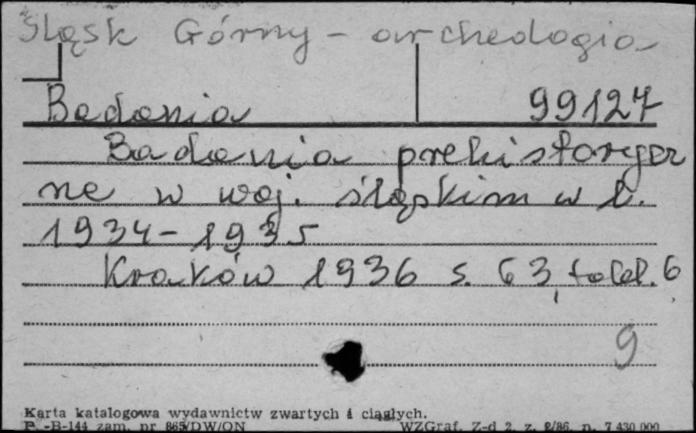 Śląsk Górny - archeologia
Badania 99127
Badania prehistorycz
ne w woj. śląskim w l.
1934-1935
Kraków 1936 s. 63, tabl. 6
9
Karta katalogowa wydawnictw zwartych i ciągłych.
P. -B-144 zam. nr 865/DW/ON WZGraf. Z-d 2, z. 2/86, n. 7 430 000